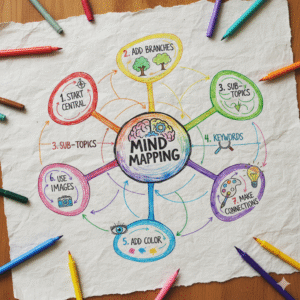 2. ADD BRANCHES
1. START
CENTRAL
3. SUB-
TOPICS
3. SUB-TOPICS
MIND
MAPPING
4. KEYWORDS
6. USE
IMAGES
7. MAKE
CONNECTIONS
5. ADD COLOR